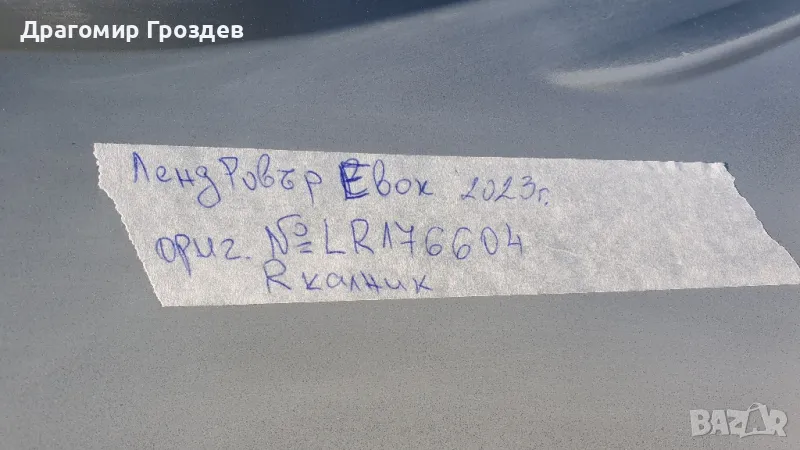 Драгомир Гроздев
ЛендРовър Евок 2023г.
ориг. №LR176604
R калник
BAZAR